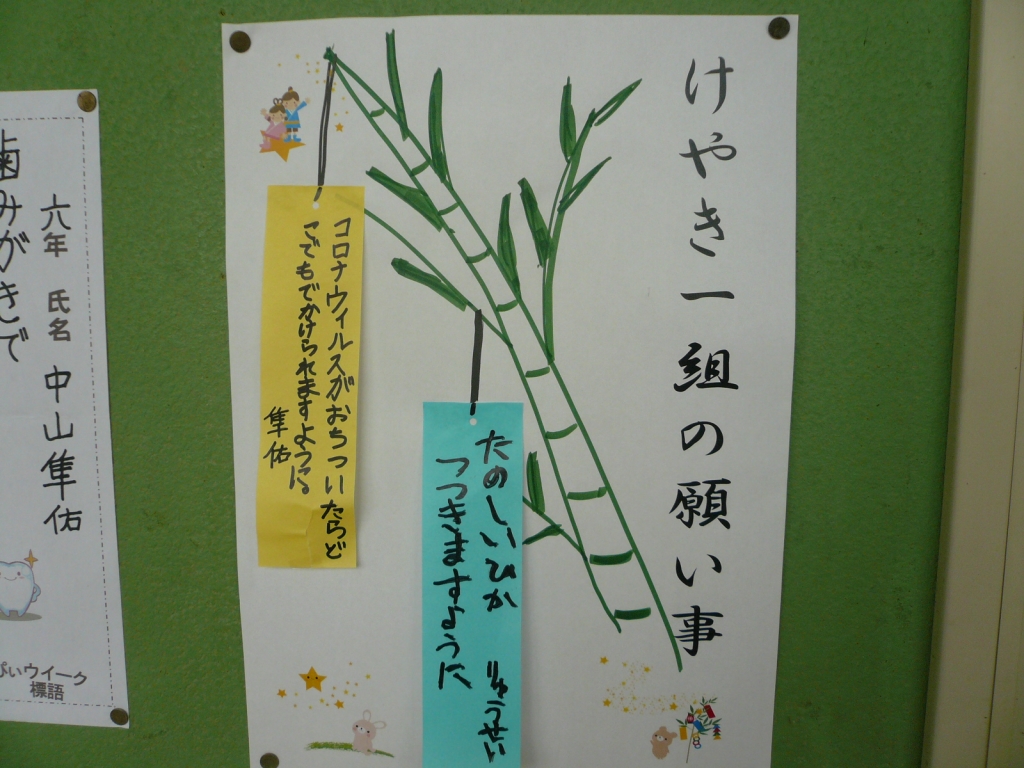 けやき一組の願い事
コロナウィルスがおちついたらど
こでもでかけられますように。
隼佑
たのしいひか
つつきますように
りゅうせい
歯みがきで
六年 氏名 中山隼佑
ぴぃウイーク
標語